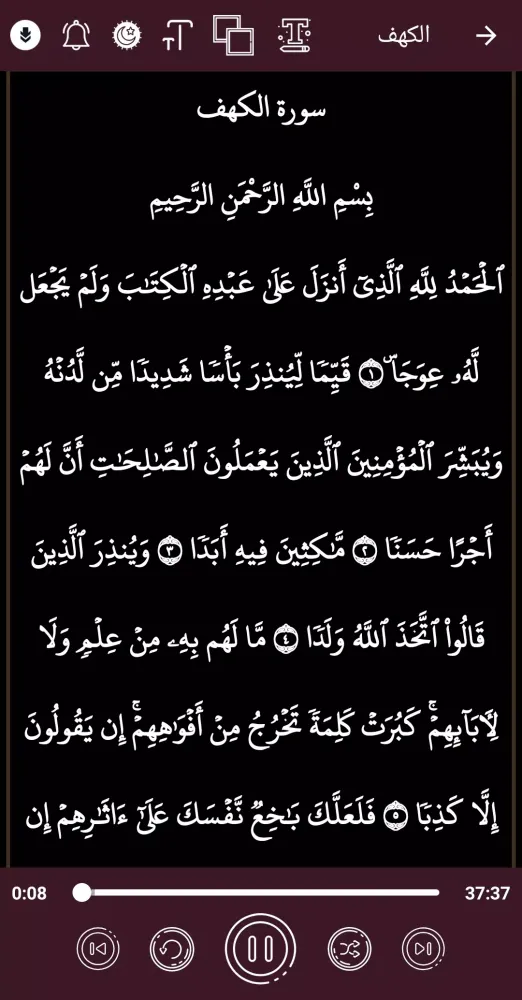 الكهف
سورة الكهف
بِسْمِ اللَّهِ الرَّحْمَنِ الرَّحِيمِ
ٱلْحَمْدُ لِلَّهِ ٱلَّذِىٓ أَنزَلَ عَلَىٰ عَبْدِهِ ٱلْكِتَـٰبَ وَلَمْ يَجْعَل
لَّهُۥ عِوَجَاۜ ١ قَيِّمًا لِّيُنذِرَ بَأْسًا شَدِيدًا مِّن لَّدُنْهُ
وَيُبَشِّرَ ٱلْمُؤْمِنِينَ ٱلَّذِينَ يَعْمَلُونَ ٱلصَّـٰلِحَـٰتِ أَنَّ لَهُمْ
أَجْرًا حَسَنًا ٢ مَّـٰكِثِينَ فِيهِ أَبَدًا ٣ وَيُنذِرَ ٱلَّذِينَ
قَالُوا۟ ٱتَّخَذَ ٱللَّهُ وَلَدًا ٤ مَّا لَهُم بِهِۦ مِنْ عِلْمٍ وَلَا
لِـَٔابَآئِهِمْ ۚ كَبُرَتْ كَلِمَةً تَخْرُجُ مِنْ أَفْوَٰهِهِمْ ۚ إِن يَقُولُونَ
إِلَّا كَذِبًا ٥ فَلَعَلَّكَ بَـٰخِعٌ نَّفْسَكَ عَلَىٰٓ ءَاثَـٰرِهِمْ إِن
0:08
37:37